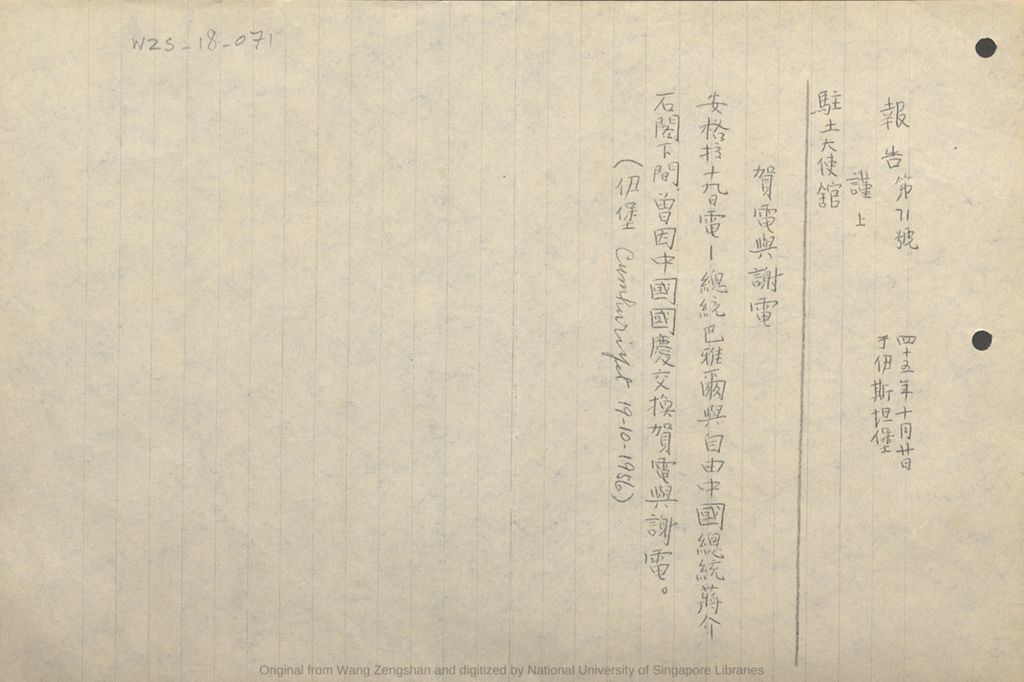 WZS-18-071
報告 第71號
四十五年十月廿日
于伊斯坦堡
謹上
駐土大使舘
賀電與謝電
安格拉十九日電－總統巴雅爾與自由中國總統蔣介
石閣下間,曾因中國國慶交換賀電與謝電。
(伊堡 Cumhuriyet 19-10-1956)
Original from Wang Zengshan and digitized by National University of Singapore Libraries